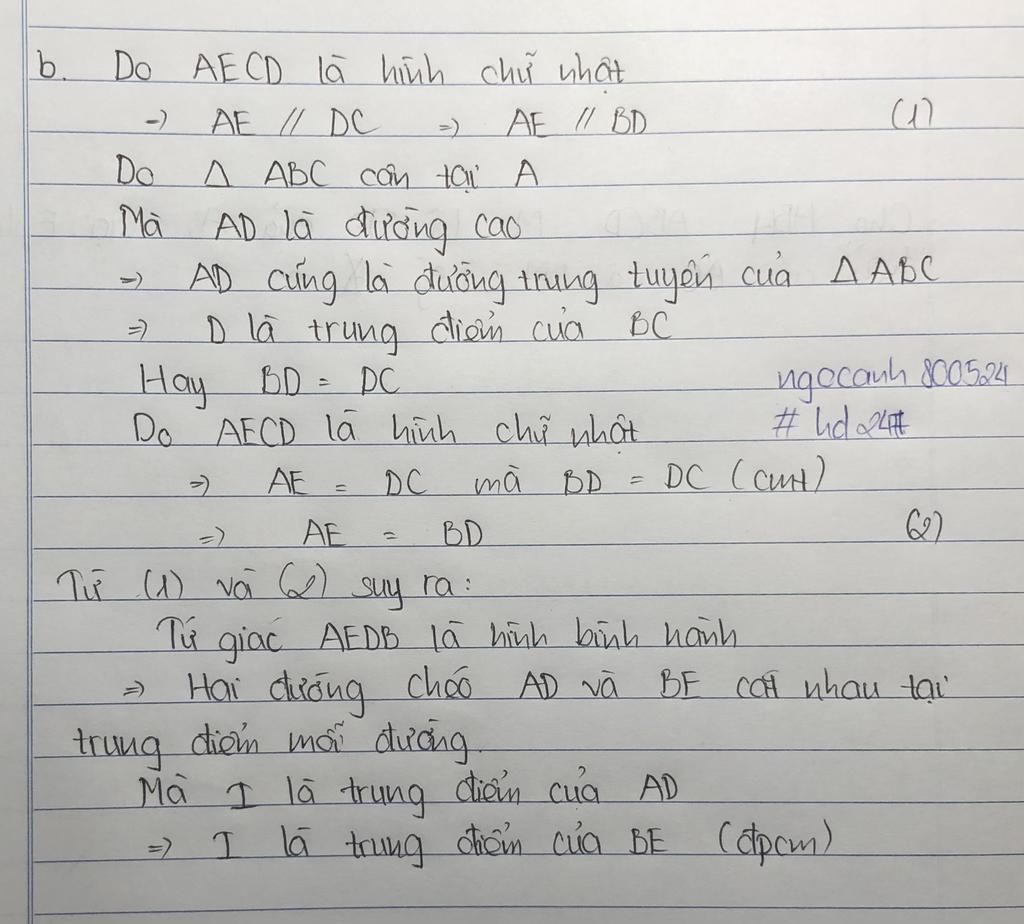 b. Do AECD là hình chữ nhật
→ AE // DC ⇒ AE // BD (1)
Do Δ ABC cân tại A
Mà AD là đường cao
⇒ AD cũng là đường trung tuyến của Δ ABC
⇒ D là trung điểm của BC
Hay BD = DC
ngocanh 800524
Do AECD là hình chữ nhật
# hd24#
⇒ AE = DC mà BD = DC (cmt)
⇒ AE = BD (2)
Từ (1) và (2) suy ra:
Tứ giác AEDB là hình bình hành
⇒ Hai đường chéo AD và BE cắt nhau tại
trung điểm mỗi đường.
Mà I là trung điểm của AD
⇒ I là trung điểm của BE (đpcm)